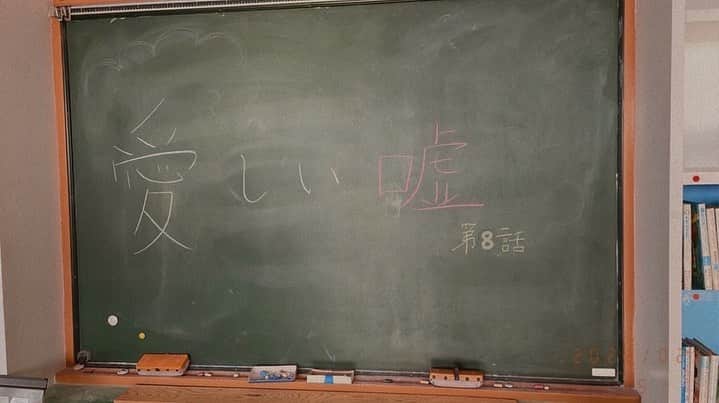 愛しい嘘
第8話